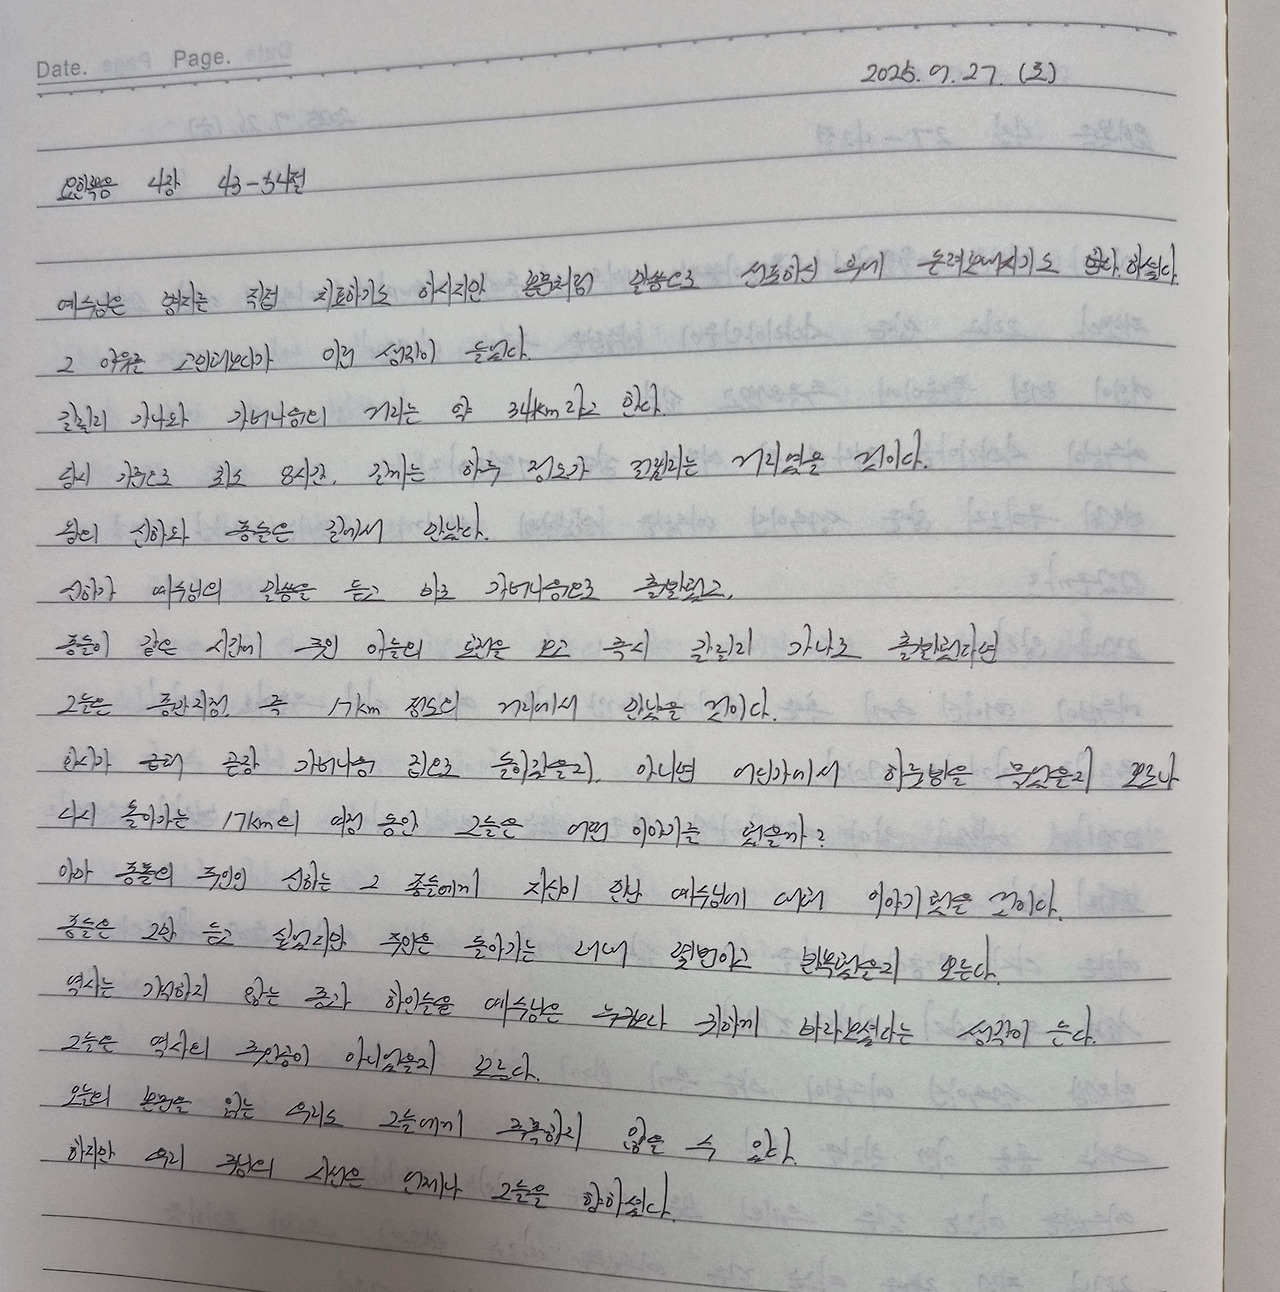 Date. Page.
2025. 9. 27. (토)
요한복음 4장 43-54절
예수님은 병자를 직접 치료하기도 하시지만 본문처럼 말씀으로 선포하신 후에 돌려보내시기도 하셨다.
그 이유를 고민해보다가 이런 생각이 들었다.
갈릴리 가나와 가버나움의 거리는 약 34km라고 한다.
당시 기준으로 최소 8시간, 길게는 하루 정도가 걸리는 거리였을 것이다.
왕의 신하와 종들은 길에서 만났다.
신하가 예수님의 말씀을 듣고 바로 가버나움으로 출발했고,
종들이 같은 시간에 주인 아들의 호전을 보고 즉시 갈릴리 가나로 출발했다면
그들은 중간지점, 즉 17km 정도의 거리에서 만났을 것이다.
만나 곧장 가버나움 집으로 돌아갔을지, 아니면 어딘가에서 하룻밤을 묵었을지 모르나
다시 돌아가는 17km의 여정 동안 그들은 어떤 이야기를 했을까?
아마 종들의 주인인 신하는 그 종들에게 자신이 만난 예수님에 대해 이야기 했을 것이다.
종들은 그만 듣고 싶었지만 주인은 돌아가는 내내 몇번이고 반복했을지 모른다.
역사는 기억하지 않는 종과 하인들을 예수님은 누구보다 귀하게 바라보셨다는 생각이 든다.
그들은 역사의 주인공이 아니었을지 모른다.
오늘의 본문을 읽는 우리도 그들에게 주목하지 않을 수 있다.
하지만 우리 주님의 시선은 언제나 그들을 향하셨다.